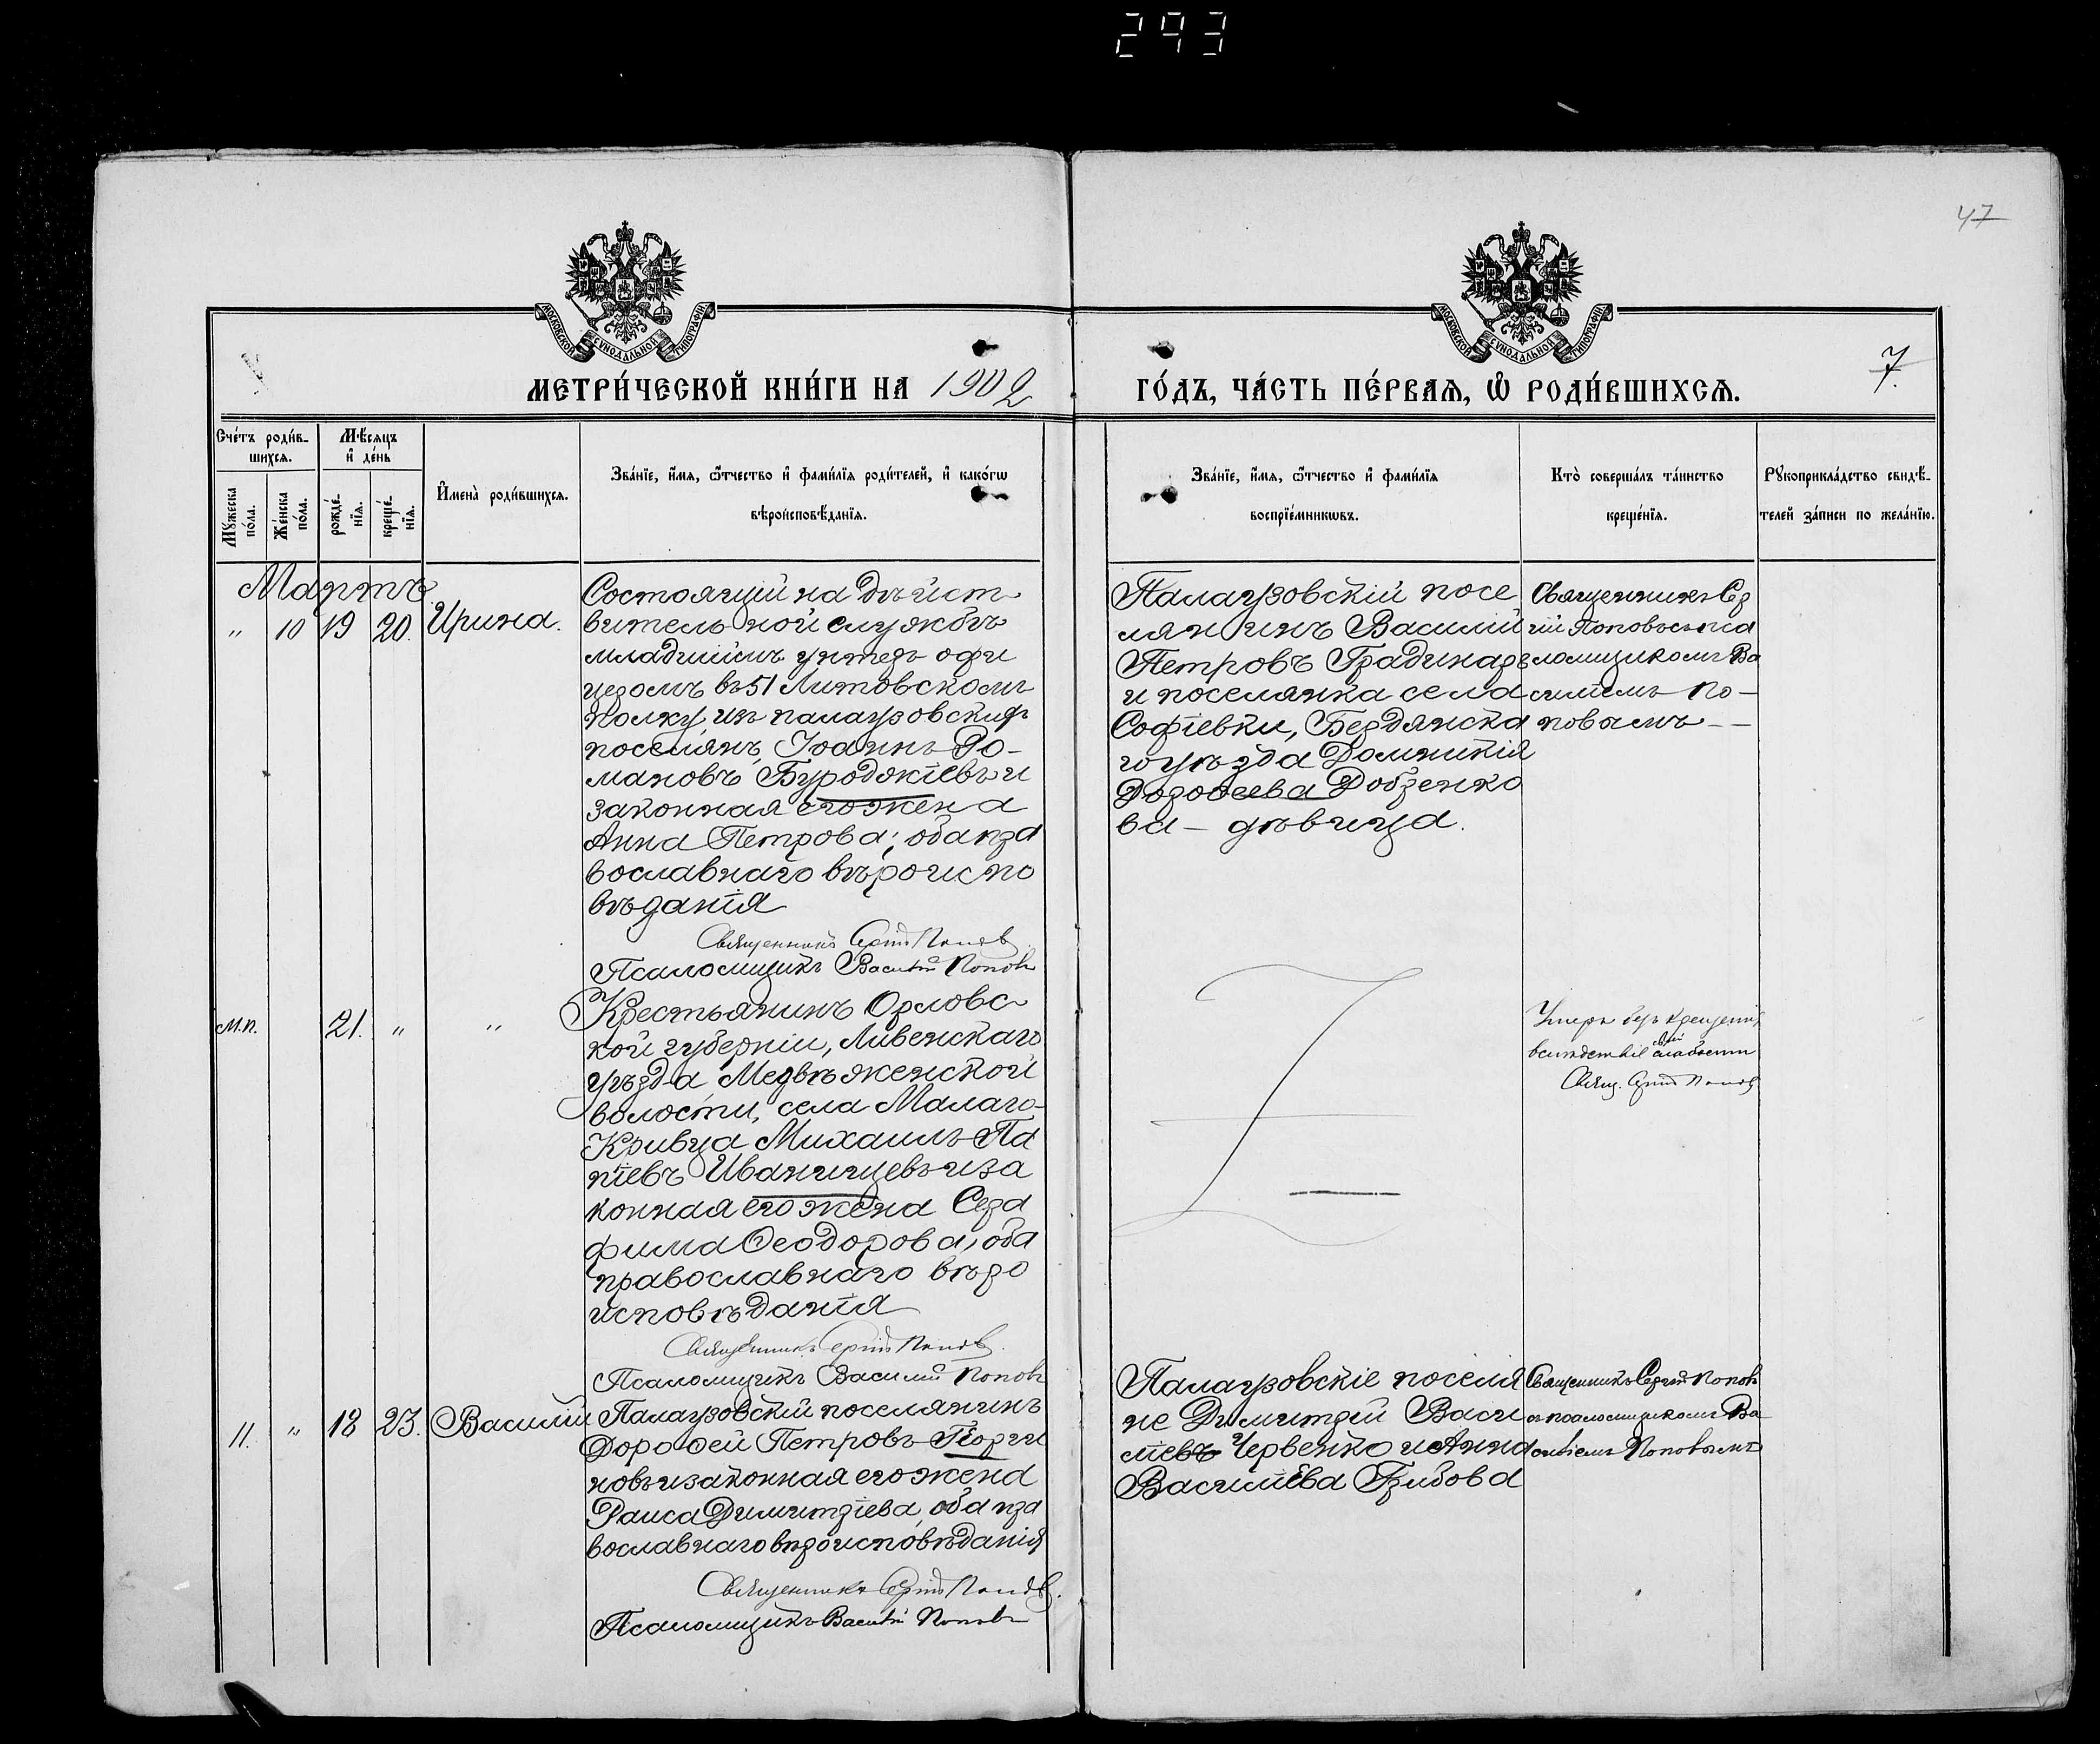 293
47
МОСКОВСКОЙ СѴНОДАЛЬНОЙ ТИПОГРАФІИ
МОСКОВСКОЙ СѴНОДАЛЬНОЙ ТИПОГРАФІИ
МЕТРИ́ЧЕСКОЙ КНИ́ГИ НА 1902
ГО́ДЪ, ЧА́СТЬ ПЕ́РВАѦ, Ѡ҆ РОДИ́ВШИХСѦ.
7.
Сче́тъ роди́в-
шихсѧ.
Мѣ́сѧцъ
и҆ де́нь
Мꙋ́жеска
по́ла.
Же́нска
по́ла.
рожде́-
нїѧ.
креще́-
нїѧ.
И҆мена̀ роди́вшихсѧ.
Зва́нїе, и҆́мѧ, ѻ҆́тчество и҆ фами́лїѧ роди́телей, и҆ како́гѡ
вѣроисповѣ́данїѧ.
Зва́нїе, и҆́мѧ, ѻ҆́тчество и҆ фами́лїѧ
воспрїе́мникѡвъ.
Кто̀ соверша́лъ та́инство
креще́нїѧ.
Рꙋкоприкла́дство свидѣ́-
телей за́писи по жела́нїю.
Мартъ
" 10 19 20. Ирина.
Состоящій на дѣйст
вительной службѣ
младшимъ унтеръ офи
церомъ въ 51 Литовскомъ
полку, изъ палаузовскихъ
поселянъ, Іоаннъ Ро-
мановъ Буроджіевъ и
законная его жена
Анна Петрова; оба пра
вославнаго вѣроиспо
вѣданія
Священникъ Сергій Попов
Псаломщикъ Василій Поповъ
Палаузовскій посе
лянинъ Василій
Петровъ Градинаръ
и поселянка села
Софіевки, Бердянска
го уѣзда Домникія
Дорофеева Добренко
ва – дѣвица.
Священникъ Сер
гій Поповъ съ пса
ломщикомъ Ва
силіемъ По-
повымъ
м.п. 21. " "
Крестьянинъ Орловс
кой губерніи, Ливенскаго
уѣзда Медвѣженской
волости, села Малаго-
Кривца Михаилъ Па
піевъ Иванищевъ и за
конная его жена Сера
фима Ѳеодорова, оба
православнаго вѣро
исповѣданія
Священникъ Сергій Попов
Псаломщикъ Василій Поповъ
Умеръ безъ крещенія
вслѣдствіе слабости
Свящ. Сергій Попов
11. " 18 23. Василій
Палаузовскій поселянинъ
Дорофей Петровъ Георги
новъ и законная его жена
Раиса Димитріева, оба пра
вославнаго вѣроисповѣданія
Священникъ Сергій Попов.
Псаломщикъ Василій Поповъ
Палаузовскіе поселя
не Димитрій Васи
ліевъ Червенко и Анна
Василіева Грибова
Священникъ Сергій Поповъ
съ псаломщикомъ Ва
силіемъ Поповымъ